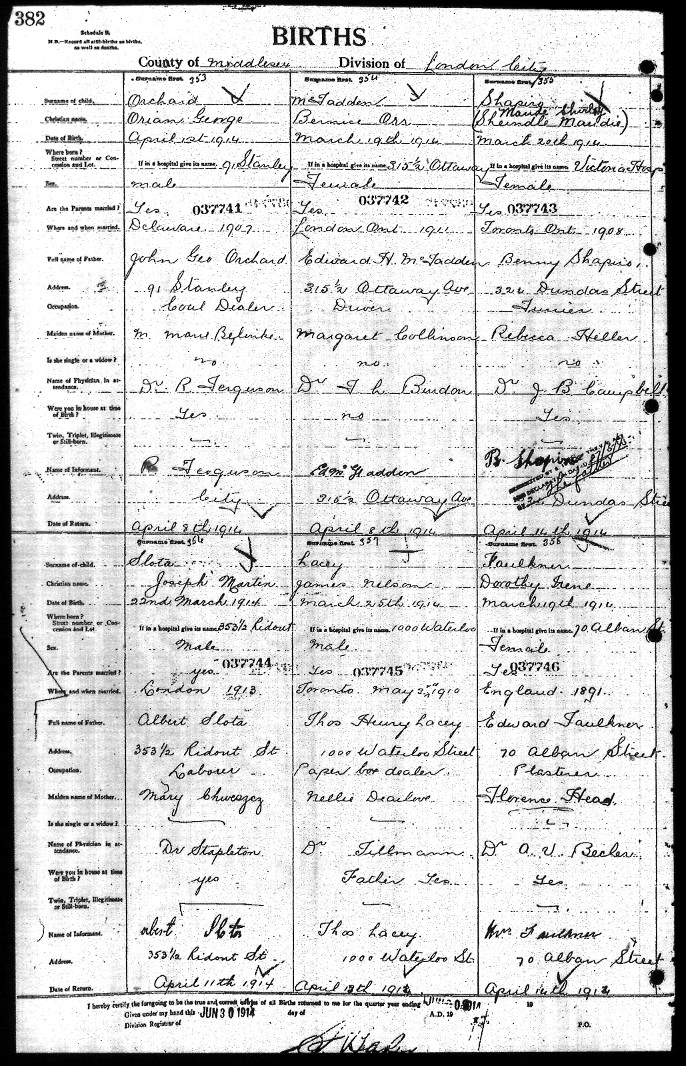 382
Schedule B.
N.B.—Record all still-births as births, as well as deaths.
BIRTHS
County of Middlesex Division of London City
Surname first. 353 Surname first. 354 Surname first. 355
Surname of child. Orchard McFadden Shapiro
Maude Shirley
Christian name. Oriam George Bernice Orr (Sheindle Maudie)
Date of Birth. April 1st 1914 March 19th 1914 March 20th 1914
Where born? Street number or Concession and Lot. If in a hospital give its name. 91 Stanley If in a hospital give its name. 315½ Ottaway If in a hospital give its name. Victoria Hosp
Sex. male Female Female
Are the Parents married? Yes 037741 Yes. 037742 Yes 037743
Where and when married. Delaware 1907 London Ont 1911 Toronto Ont 1908
Full name of Father. John Geo Orchard Edward H. McFadden Benny Shapiro
Address. 91 Stanley 315½ Ottaway Ave 324 Dundas Street
Occupation. Coal Dealer Driver Furrier
Maiden name of Mother. M. Maud Margaret Collinson Rebecca Heller
Is she single or a widow? no no no
Name of Physician in attendance. Dr R. Ferguson Dr Dr J B Campbell
Were you in house at time of Birth? Yes no Yes
Twin, Triplet, Illegitimate or Still-born. — — —
Name of Informant. R Ferguson B. Shapiro
Address. City 315½ Ottaway Ave Dundas Street
Date of Return. April 8th 1914 April 8th 1914 April 14th 1914
Surname first. 356 Surname first. 357 Surname first. 358
Surname of child. Slota Lacey Faulkner
Christian name. Joseph Martin James Nelson Dorothy Irene
Date of Birth. 22nd March 1914 March 25th 1914 March 19th 1914
Where born? Street number or Concession and Lot. If in a hospital give its name. 353½ Ridout If in a hospital give its name. 1000 Waterloo If in a hospital give its name. 70 Alban St.
Sex. Male male Female
Are the Parents married? yes 037744 Yes 037745 Yes 037746
Where and when married. London 1913 Toronto May 1910 England 1891
Full name of Father. Albert Slota Thos Henry Lacey Edward Faulkner
Address. 353½ Ridout St 1000 Waterloo Street 70 Alban Street
Occupation. Laborer Paper box dealer Plasterer
Maiden name of Mother. Mary Nellie Dearlove Florence Head
Is she single or a widow?
Name of Physician in attendance. Dr Stapleton Dr Tillmann Dr A. V. Becher
Were you in house at time of Birth? yes Father Yes Yes
Twin, Triplet, Illegitimate or Still-born. — —
Name of Informant. Slota Thos Lacey Faulkner
Address. 353½ Ridout St 1000 Waterloo St 70 Alban Street
Date of Return. April 11th 1914 April 13th 1914 April 14th 1914
I hereby certify the foregoing to be the true and correct of all Births returned to me for the quarter year ending 19
Given under my hand this JUN 30 1914 day of A.D. 19
Division Registrar of P.O.